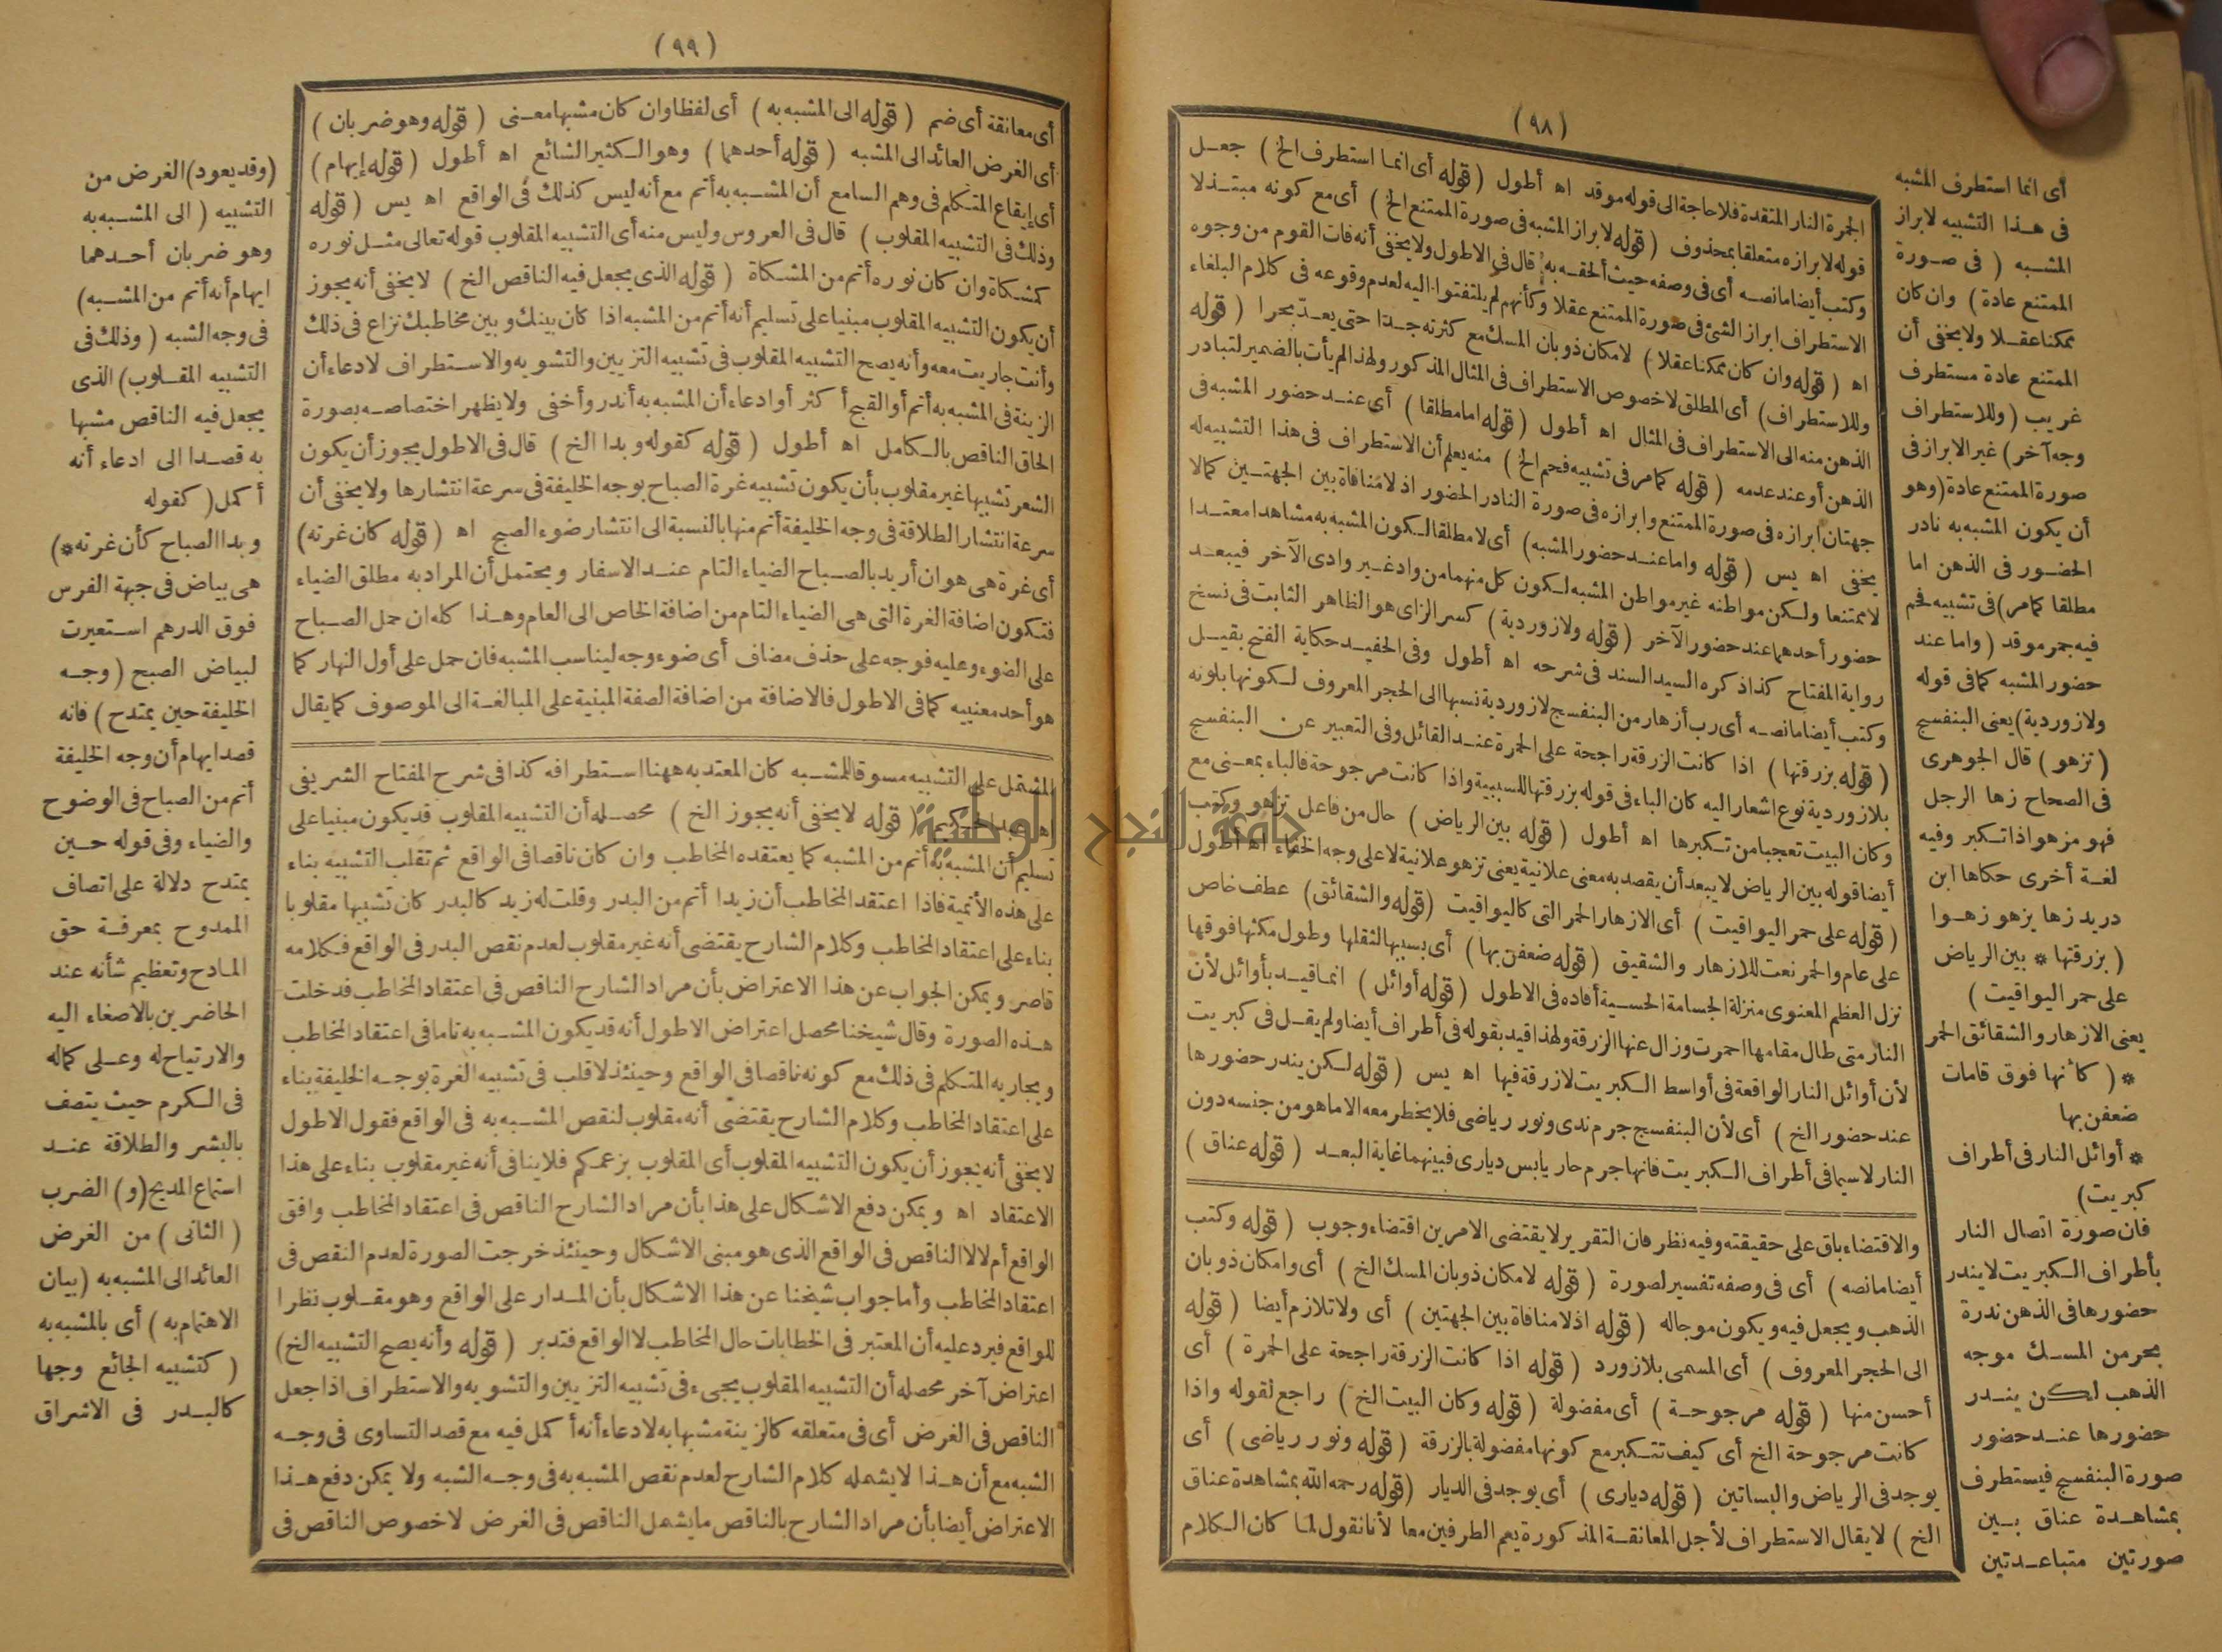 (٩٨)
أى انما استطرف المشبه
فى هذا التشبيه لابراز
المشبه (فى صورة
الممتنع عادة) وان كان
ممكنا عقلا ولا يخفى أن
الممتنع عادة مستطرف
غريب (وللاستطراف
وجه آخر) غير الابراز فى
صورة الممتنع عادة (وهو
أن يكون المشبه به نادر
الحضور فى الذهن اما
مطلقا كمامر) فى تشبيه فحم
فيه جمر موقد (واما عند
حضور المشبه كما فى قوله
ولازوردية) يعنى البنفسج
(تزهو) قال الجوهرى
فى الصحاح زها الرجل
فهو مزهو اذا تكبر وفيه
لغة أخرى حكاها ابن
دريد زها يزهو زهوا
(بزرقتها * بين الرياض
على حمر اليواقيت)
يعنى الازهار والشقائق الحمر
* (كأنها فوق قامات
ضعفن بها
* أوائل النار فى أطراف
كبريت)
فان صورة اتصال النار
بأطراف الكبريت لا يندر
حضورها فى الذهن ندرة
بحر من المسك موجه
الذهب لكن يندر
حضورها عند حضور
صورة البنفسج فيستطرف
بمشاهدة عناق بين
صورتين متباعدتين
الجمرة النار المتقدة فلا حاجة الى قوله موقد اه أطول (قوله أى انما استطرف الخ) جعل
قوله لابرازه متعلقا بمحذوف (قوله لابراز المشبه فى صورة الممتنع الخ) أى مع كونه مبتذلا
وكتب أيضا مانصه أى فى وصفه حيث ألحقه به قال فى الاطول ولا يخفى أنه فات القوم من وجوه
الاستطراف ابراز الشئ فى صورة الممتنع عقلا وكأنهم لم يلتفتوا اليه لعدم وقوعه فى كلام البلغاء
اه (قوله وان كان ممكنا عقلا) لامكان ذوبان المسك مع كثرته جدّا حتى يعدّ بحرا (قوله
وللاستطراف) أى المطلق لا خصوص الاستطراف فى المثال المذكور ولهذا لم يأت بالضمير لتبادر
الذهن منه الى الاستطراف فى المثال اه أطول (قوله اما مطلقا) أى عند حضور المشبه فى
الذهن أو عند عدمه (قوله كمامر فى تشبيه فحم الخ) منه يعلم أن الاستطراف فى هذا التشبيه له
جهتان ابرازه فى صورة الممتنع وابرازه فى صورة النادر الحضور اذ لا منافاة بين الجهتين كمالا
يخفى اه يس (قوله واما عند حضور المشبه) أى لا مطلقا لكون المشبه به مشاهدا معتدا
لا ممتنعا ولكن مواطنه غير مواطن المشبه لكون كل منهما من واد غير وادى الآخر فيبعد
حضور أحدهما عند حضور الآخر (قوله ولازوردية) كسر الزاى هو الظاهر الثابت فى نسخ
رواية المفتاح كذا ذكره السيد السند فى شرحه اه أطول وفى الحفيد حكاية الفتح بقيل
وكتب أيضا مانصه أى رب أزهار من البنفسج لازوردية نسبها الى الحجر المعروف لكونها بلونه
(قوله بزرقتها) اذا كانت الزرقة راجحة على الحمرة عند القائل وفى التعبير عن البنفسج
بلازوردية نوع اشعار اليه كان الباء فى قوله بزرقتها للسببية واذا كانت مرجوحة فالباء بمعنى مع
وكان البيت تعجبا من تكبرها اه أطول (قوله بين الرياض) حال من فاعل تزهو وكتب
أيضا قوله بين الرياض لا يبعد أن يقصد به معنى علانية يعنى تزهو علانية لا على وجه الخفاء اه أطول
(قوله على حمر اليواقيت) أى الازهار الحمر التى كاليواقيت (قوله والشقائق) عطف خاص
على عام والحمر نعت للازهار والشقيق (قوله ضعفن بها) أى بسببها لثقلها وطول مكثها فوقها
نزل العظم المعنوى منزلة الجسامة الحسية أفاده فى الاطول (قوله أوائل) انما قيد بأوائل لأن
النار متى طال مقامها احمرت وزال عنها الزرقة ولهذا قيد بقوله فى أطراف أيضا ولم يقل فى كبريت
لأن أوائل النار الواقعة فى أواسط الكبريت لا زرقة فيها اه يس (قوله لكن يندر حضورها
عند حضور الخ) أى لأن البنفسج جرم ندى ونور رياضى فلا يخطر معه الا ما هو من جنسه دون
النار لاسيما فى أطراف الكبريت فانها جرم حار يابس ديارى فبينهما غاية البعد (قوله عناق)
والاقتضاء باق على حقيقته وفيه نظر فان التقرير لا يقتضى الامرين اقتضاء وجوب (قوله وكتب
أيضا مانصه) أى فى وصفه تفسير لصورة (قوله لامكان ذوبان المسك الخ) أى وامكان ذوبان
الذهب ويجعل فيه ويكون موجاله (قوله اذ لا منافاة بين الجهتين) أى ولا تلازم أيضا (قوله
الى الحجر المعروف) أى المسمى بلازورد (قوله اذا كانت الزرقة راجحة على الحمرة) أى
أحسن منها (قوله مرجوحة) أى مفضولة (قوله وكان البيت الخ) راجع لقوله واذا
كانت مرجوحة الخ أى كيف تتكبر مع كونها مفضولة بالزرقة (قوله ونور رياضى) أى
يوجد فى الرياض والبساتين (قوله ديارى) أى يوجد فى الديار (قوله رحمه الله بمشاهدة عناق
الخ) لا يقال الاستطراف لأجل المعانقة المذكورة يعم الطرفين معا لأنا نقول لما كان الكلام
(٩٩)
أى معانقة أى ضم (قوله الى المشبه به) أى لفظا وان كان مشبها معنى (قوله وهو ضربان)
أى الغرض العائد الى المشبه (قوله أحدهما) وهو الكثير الشائع اه أطول (قوله إيهام)
أى إيقاع المتكلم فى وهم السامع أن المشبه به أتم مع أنه ليس كذلك فى الواقع اه يس (قوله
وذلك فى التشبيه المقلوب) قال فى العروس وليس منه أى التشبيه المقلوب قوله تعالى مثل نوره
كمشكاة وان كان نوره أتم من المشكاة (قوله الذى يجعل فيه الناقص الخ) لا يخفى أنه يجوز
أن يكون التشبيه المقلوب مبنيا على تسليم أنه أتم من المشبه اذا كان بينك وبين مخاطبك نزاع فى ذلك
وأنت جاريت معه وأنه يصح التشبيه المقلوب فى تشبيه التزيين والتشويه والاستطراف لادعاء أن
الزينة فى المشبه به أتم أو القبح أكثر أو ادعاء أن المشبه به أندر وأخفى ولا يظهر اختصاصه بصورة
الحاق الناقص بالكامل اه أطول (قوله كقوله وبدا الخ) قال فى الاطول يجوز أن يكون
الشعر تشبيها غير مقلوب بأن يكون تشبيه غرة الصباح بوجه الخليفة فى سرعة انتشارها ولا يخفى أن
سرعة انتشار الطلاقة فى وجه الخليفة أتم منها بالنسبة الى انتشار ضوء الصبح اه (قوله كان غرته)
أى غرة هى هو ان أريد بالصباح الضياء التام عند الاسفار ويحتمل أن المراد به مطلق الضياء
فتكون اضافة الغرة التى هى الضياء التام من اضافة الخاص الى العام وهذا كله ان حمل الصباح
على الضوء وعليه فوجه على حذف مضاف أى ضوء وجه ليناسب المشبه فان حمل على أول النهار كما
هو أحد معنييه كما فى الاطول فالاضافة من اضافة الصفة المبنية على المبالغة الى الموصوف كما يقال
المشتمل على التشبيه مسوقا للمشبه كان المعتد به ههنا استطرافه كذا فى شرح المفتاح الشريفى
اه عبد الحكيم (قوله لا يخفى أنه يجوز الخ) محصله أن التشبيه المقلوب قد يكون مبنيا على
تسليم أن المشبه به أتم من المشبه كما يعتقده المخاطب وان كان ناقصا فى الواقع ثم تقلب التشبيه بناء
على هذه الأتمية فاذا اعتقد المخاطب أن زيدا أتم من البدر وقلت له زيد كالبدر كان تشبيها مقلوبا
بناء على اعتقاد المخاطب وكلام الشارح يقتضى أنه غير مقلوب لعدم نقص البدر فى الواقع فكلامه
قاصر ويمكن الجواب عن هذا الاعتراض بأن مراد الشارح الناقص فى اعتقاد المخاطب فدخلت
هذه الصورة وقال شيخنا محصل اعتراض الاطول أنه قد يكون المشبه به تاما فى اعتقاد المخاطب
ويجاريه المتكلم فى ذلك مع كونه ناقصا فى الواقع وحينئذ لا قلب فى تشبيه الغرة بوجه الخليفة بناء
على اعتقاد المخاطب وكلام الشارح يقتضى أنه مقلوب لنقص المشبه به فى الواقع فقول الاطول
لا يخفى أنه يجوز أن يكون التشبيه المقلوب أى المقلوب بزعمكم فلا ينافى أنه غير مقلوب بناء على هذا
الاعتقاد اه ويمكن دفع الاشكال على هذا بأن مراد الشارح الناقص فى اعتقاد المخاطب وافق
الواقع أم لا لا الناقص فى الواقع الذى هو مبنى الاشكال وحينئذ خرجت الصورة لعدم النقص فى
اعتقاد المخاطب وأما جواب شيخنا عن هذا الاشكال بأن المدار على الواقع وهو مقلوب نظرا
للواقع فيرد عليه أن المعتبر فى الخطابات حال المخاطب لا الواقع فتدبر (قوله وأنه يصح التشبيه الخ)
اعتراض آخر محصله أن التشبيه المقلوب يجىء فى تشبيه التزيين والتشويه والاستطراف اذا جعل
الناقص فى الغرض أى فى متعلقه كالزينة مشبها به لادعاء أنه أكمل فيه مع قصد التساوى فى وجه
الشبه مع أن هذا لا يشمله كلام الشارح لعدم نقص المشبه به فى وجه الشبه ولا يمكن دفع هذا
الاعتراض أيضا بأن مراد الشارح بالناقص ما يشمل الناقص فى الغرض لا خصوص الناقص فى
(وقد يعود) الغرض من
التشبيه (الى المشبه به
وهو ضربان أحدهما
ايهام أنه أتم من المشبه)
فى وجه الشبه (وذلك فى
التشبيه المقلوب) الذى
يجعل فيه الناقص مشبها
به قصدا الى ادعاء أنه
أكمل (كقوله
وبدا الصباح كأن غرته*)
هى بياض فى جبهة الفرس
فوق الدرهم استعيرت
لبياض الصبح (وجه
الخليفة حين يمتدح) فانه
قصد ايهام أن وجه الخليفة
أتم من الصباح فى الوضوح
والضياء وفى قوله حين
يمتدح دلالة على اتصاف
الممدوح بمعرفة حق
المادح وتعظيم شأنه عند
الحاضرين بالاصغاء اليه
والارتياح له وعلى كماله
فى الكرم حيث يتصف
بالبشر والطلاقة عند
استماع المديح (و) الضرب
(الثانى) من الغرض
العائد الى المشبه به (بيان
الاهتمام به) أى بالمشبه به
(كتشبيه الجائع وجها
كالبدر فى الاشراق
جامعة النجاح الوطنية